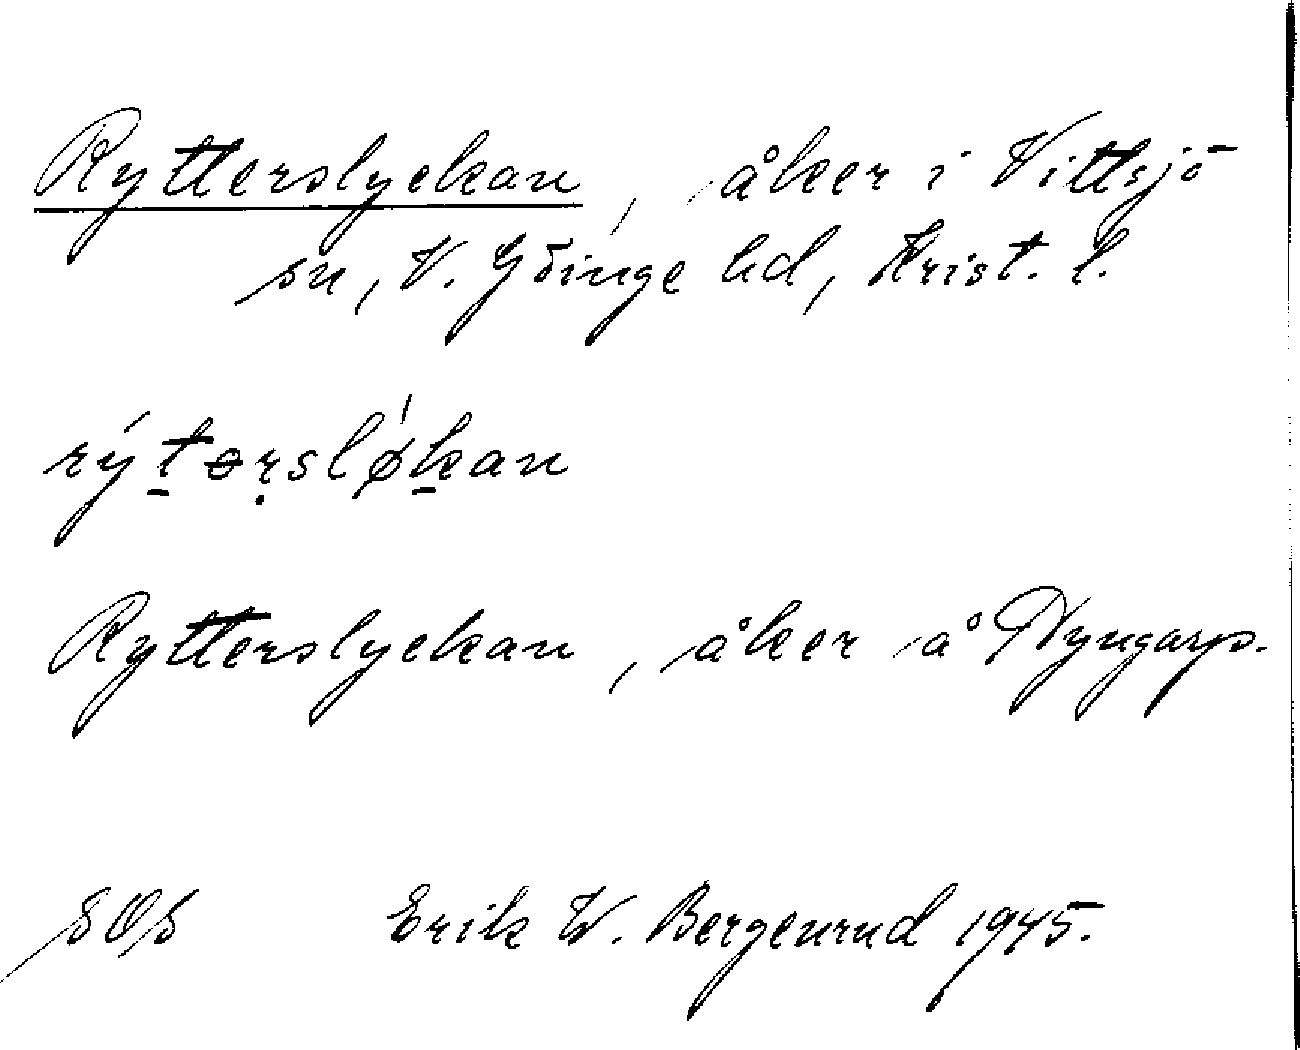 Rytterslyckan, åker i Vittsjö
sn, V. Göinge hd, Krist. l.
rýt̠ərṣlǿk̠an
Rytterslyckan, åker å Nyngarp.
SOS Erik W. Bergenrud 1945.